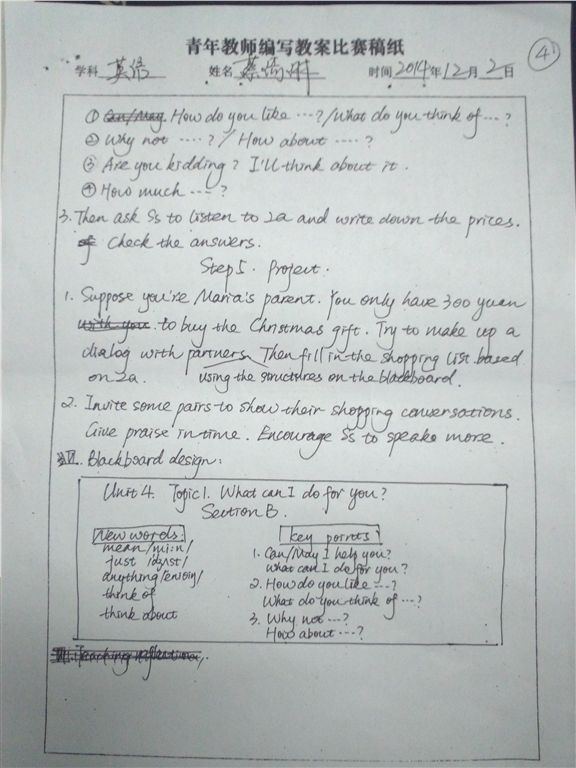 青年教师编写教案比赛稿纸
④
学科 英语 姓名 蔡 时间 2014年12月2日
① Can/May. How do you like ...? / What do you think of ...?
② Why not ....? / How about ....?
③ Are you kidding? I'll think about it.
④ How much ....?
3. Then ask Ss to listen to 2a and write down the prices.
Check the answers.
Step 5. Project.
1. Suppose you're Maria's parent. You only have 300 yuan
with you. to buy the Christmas gift. Try to make up a
dialog with partners. Then fill in the shopping list based
on 2a. using the structures on the blackboard.
2. Invite some pairs to show their shopping conversations.
Give praise in time. Encourage Ss to speake more.
VI. Blackboard design:
Unit 4. Topic 1. What can I do for you?
Section B.
New words: key points
mean /mi:n/ 1. Can/May I help you?
just /dʒʌst/ what can I do for you?
anything /eniθiŋ/ 2. How do you like ...?
think of What do you think of ...?
think about 3. Why not ...?
How about ...?
VII. Teaching reflection: